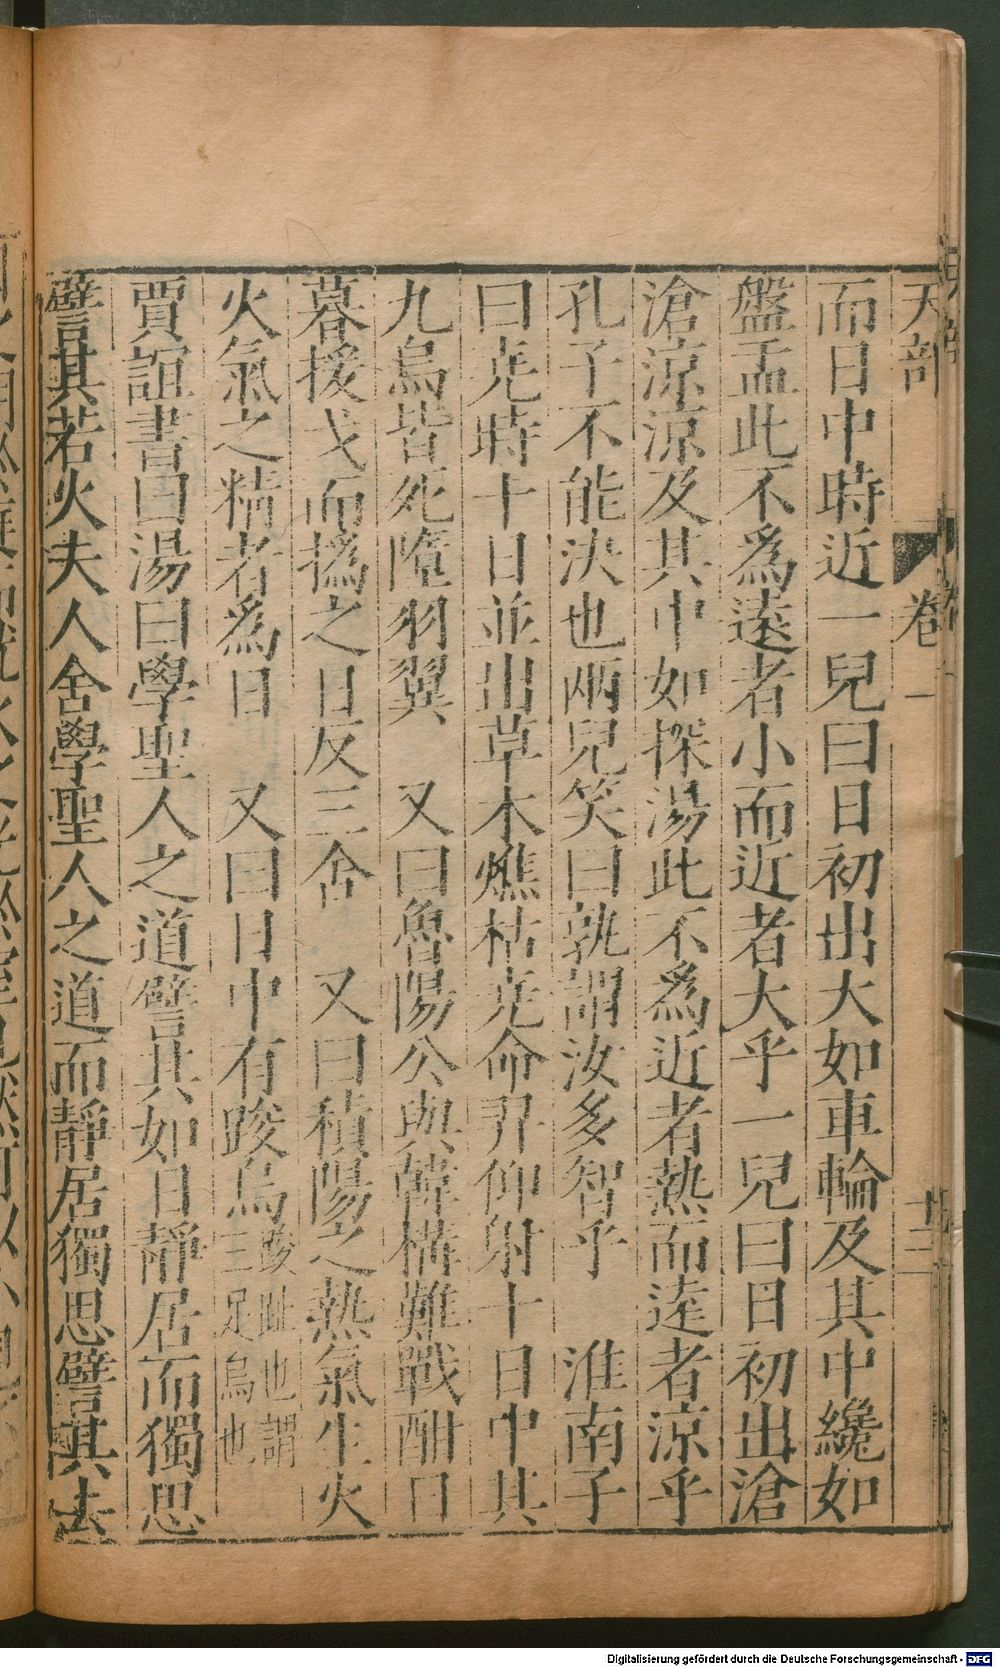 天部 卷一 十二
而日中時近一兒曰日初出大如車輪及其中纔如
盤盂此不爲遠者小而近者大乎一兒曰日初出滄
滄涼涼及其中如探湯此不爲近者熱而遠者涼乎
孔子不能決也兩兒笑曰孰謂汝多智乎 淮南子
曰尭時十日並出草木燋枯尭命羿仰射十日中其
九烏皆死墮羽翼 又曰魯陽公與韓構難戰酣日
暮援戈而撝之日反三舍 又曰積陽之熱氣生火
火氣之精者爲日 又曰日中有踆烏踆趾也謂三足烏也
賈誼書曰湯曰學聖人之道譬其如日靜居而獨思
譬其若火夫人舍學聖人之道而靜居獨思譬其去
Digitalisierung gefördert durch die Deutsche Forschungsgemeinschaft - DFG